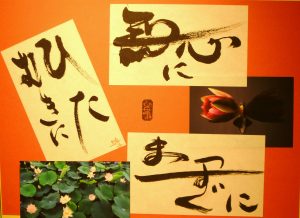 ひた
むきに
無心に
まっすぐに